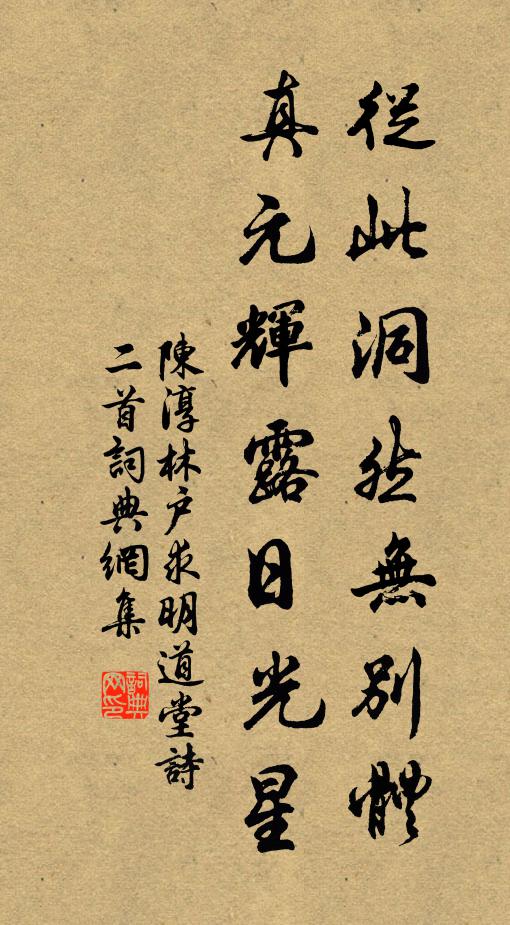 從此洞然無別體
真元輝露日光星
陳淳林户求明道堂詩
二首詞典網集
詞典
网印